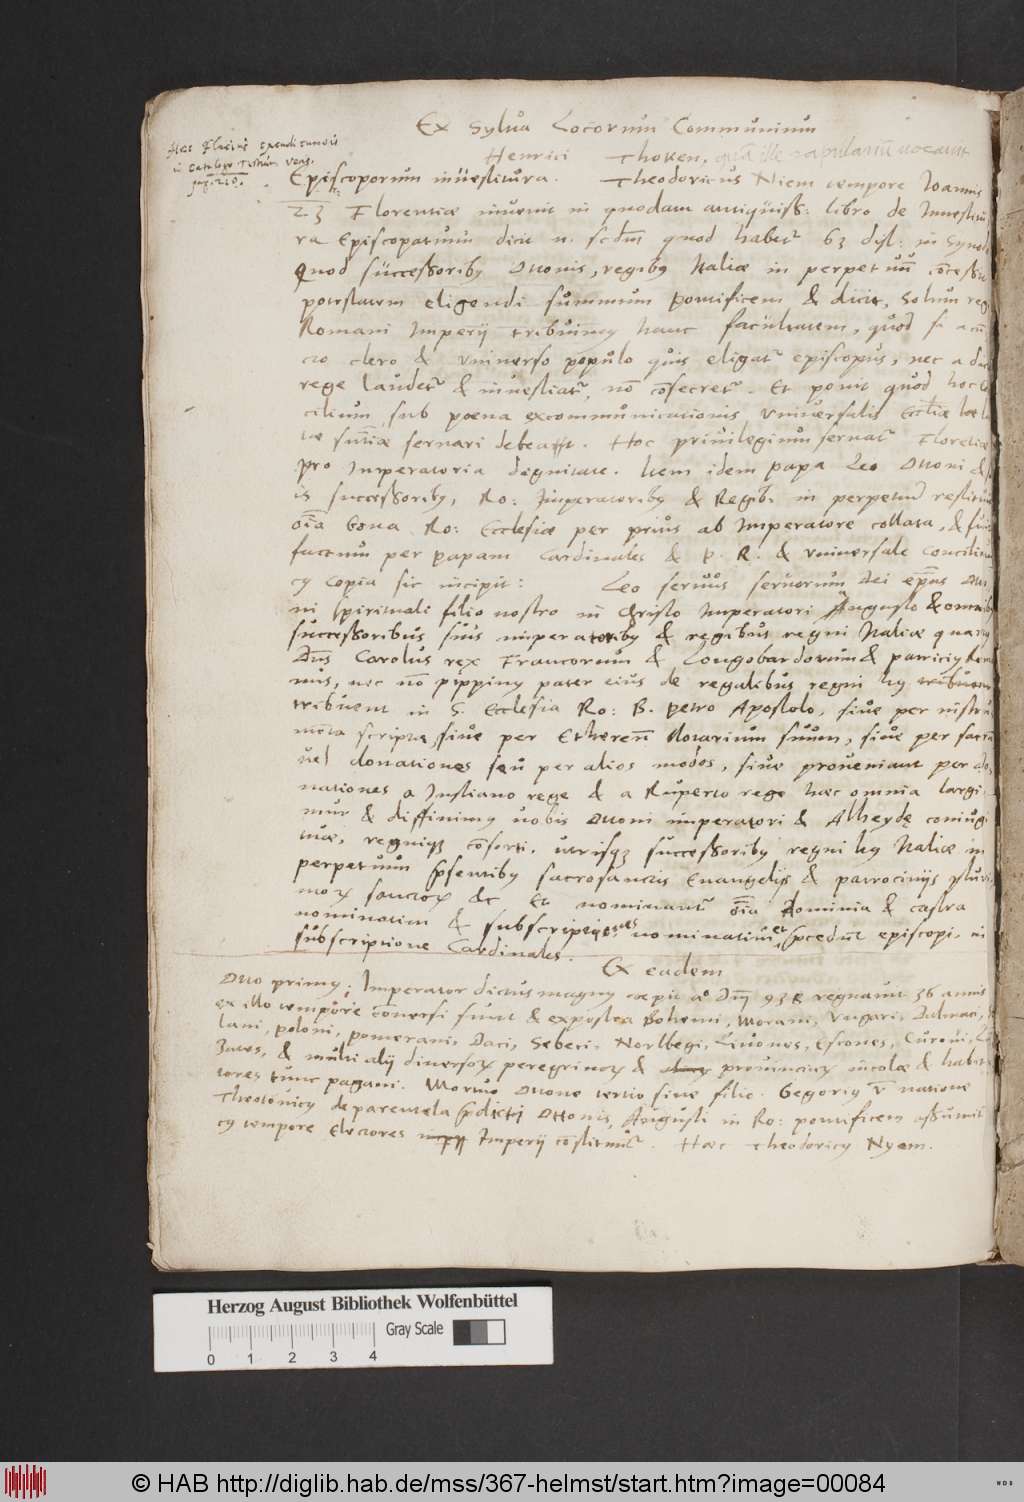 Ex Sylva Locorum Communium
Henrici Thoken, quã ille rapulariũ vocavit
Hæc Flacius excudi curavit
in Catalogo Testium verit.
pag. 210.
Episcoporum investitura. Theodoricus Niem tempore Ioannis
23 Florentiæ invenit in quodam antiquiss: libro de Investitu
ra Episcopatuum dicit n. scdm quod habetr 63 dist: in Synodo
Quod successoriby Ottonis, regiby Italiæ in perpetuũ cõcessit
potestatem eligendi summum pontificem & dicit, Solum regi
Romani Imperij tribuimus hanc facultatem, quod si a cũ
cto clero & universo populo quis eligatr episcopus, nec a dicto
rege laudetr & investiatr, nõ cõsecretr. Et ponit quod hoc cõ
cilium sub poena excommunicationis universalis Eccliæ
tæ sntiæ servari debeat. Hoc privilegium servatr Floretiæ
pro Imperatoria dignitate. Item idem papa Leo Ottoni &
is successoriby, Ro: Imperatoriby & Regiby in perpetuũ restituit
oia bona Ro: Ecclesiæ per prius ab Imperatore collata, &
factum per papam Cardinales & P. R. & universale Concilium
cy copia sic incipit: Leo servus servorum Dei epus Otto
ni spirituali filio nostro in Christo Imperatori Augusto & omniby
successoribus suis imperatoriby & regibus regni Italiæ quæcunq
Dns Carolus rex Francorum & Longobardorum & patriciy Rom
nus, nec nõ pippiny pater eius de regalibus regni hy
tribuerit in S. Ecclesia Ro: B. Petro Apostolo, sive per instru
menta scripta, sive per Etherenũ Notarium suum, sive per sacra
vel donationes seu per alios modos, sive proveniant per do
nationes a Iustiano rege & a Ruperto rege hæc omnia largi
mur & diffinimy vobis Ottoni imperatori & Alheydę coniugi
tuæ, regniq3 cõsorti, utrisq3 successoriby regni hy Italiæ in
perpetuum psentiby sacrosanctis Evangelijs & patrocinijs pluri
mor sanctor &c Et nominantr oia dominia & castra
nominatim & subscriptiones nominatim et pcedunt episcopi in
subscriptione Cardinales.
Ex eadem
Otto primy, Imperator dictus magny cœpit aº Dnj 938 regnavit 36 annis
ex illo tempore cõversi sunt & expostea Bohemi, Moravi, Vngari, Dalmaci,
lavi, poloni, pomerani, Daci, Sebeci, Norlbegi, Livones, Estones, Curoni,
& multi alij diversor peregrinor & provinciar incolæ & habita
tores tunc pagani. Mortuo Ottone tertio sine filio. Gegoriy V natione
Theotonicy de parentela pdicti Ottonis, Augusti in Ro: pontificem assumit
cy tempore Electores Imperij cõstituũtr. Hæc Theodoricy Nyem.
Herzog August Bibliothek Wolfenbüttel
Gray Scale
0 1 2 3 4
© HAB http://diglib.hab.de/mss/367-helmst/start.htm?image=00084